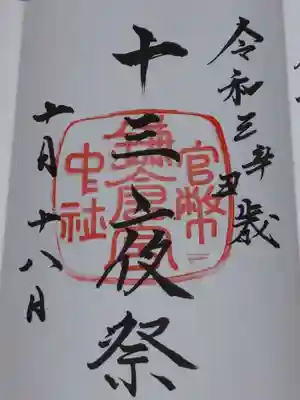 令和三年丑歳
十三夜祭
十月十八日
官幣
鎌倉宮
中社